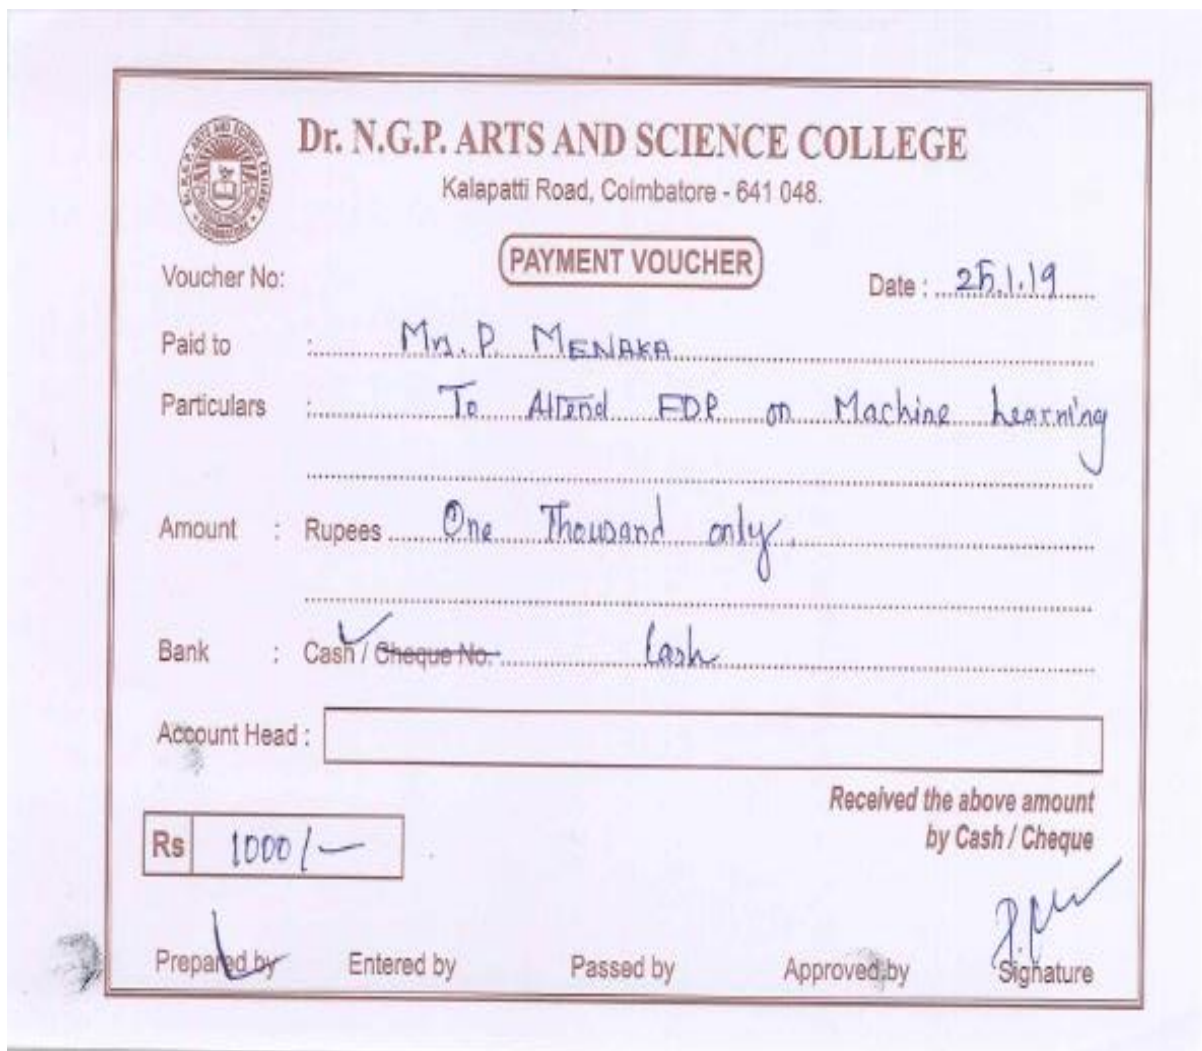 Dr. N.G.P. ARTS AND SCIENCE COLLEGE
Kalapatti Road, Coimbatore - 641 048.
PAYMENT VOUCHER
Voucher No:
Date : 25.1.19
Paid to : Mrs. P. MENAKA
Particulars : To Attend FDP on Machine Learning
Amount : Rupees One Thousand only.
Bank : Cash / Cheque No. Cash
Account Head :
Received the above amount
by Cash / Cheque
Rs 1000/-
Prepared by Entered by Passed by Approved by Signature